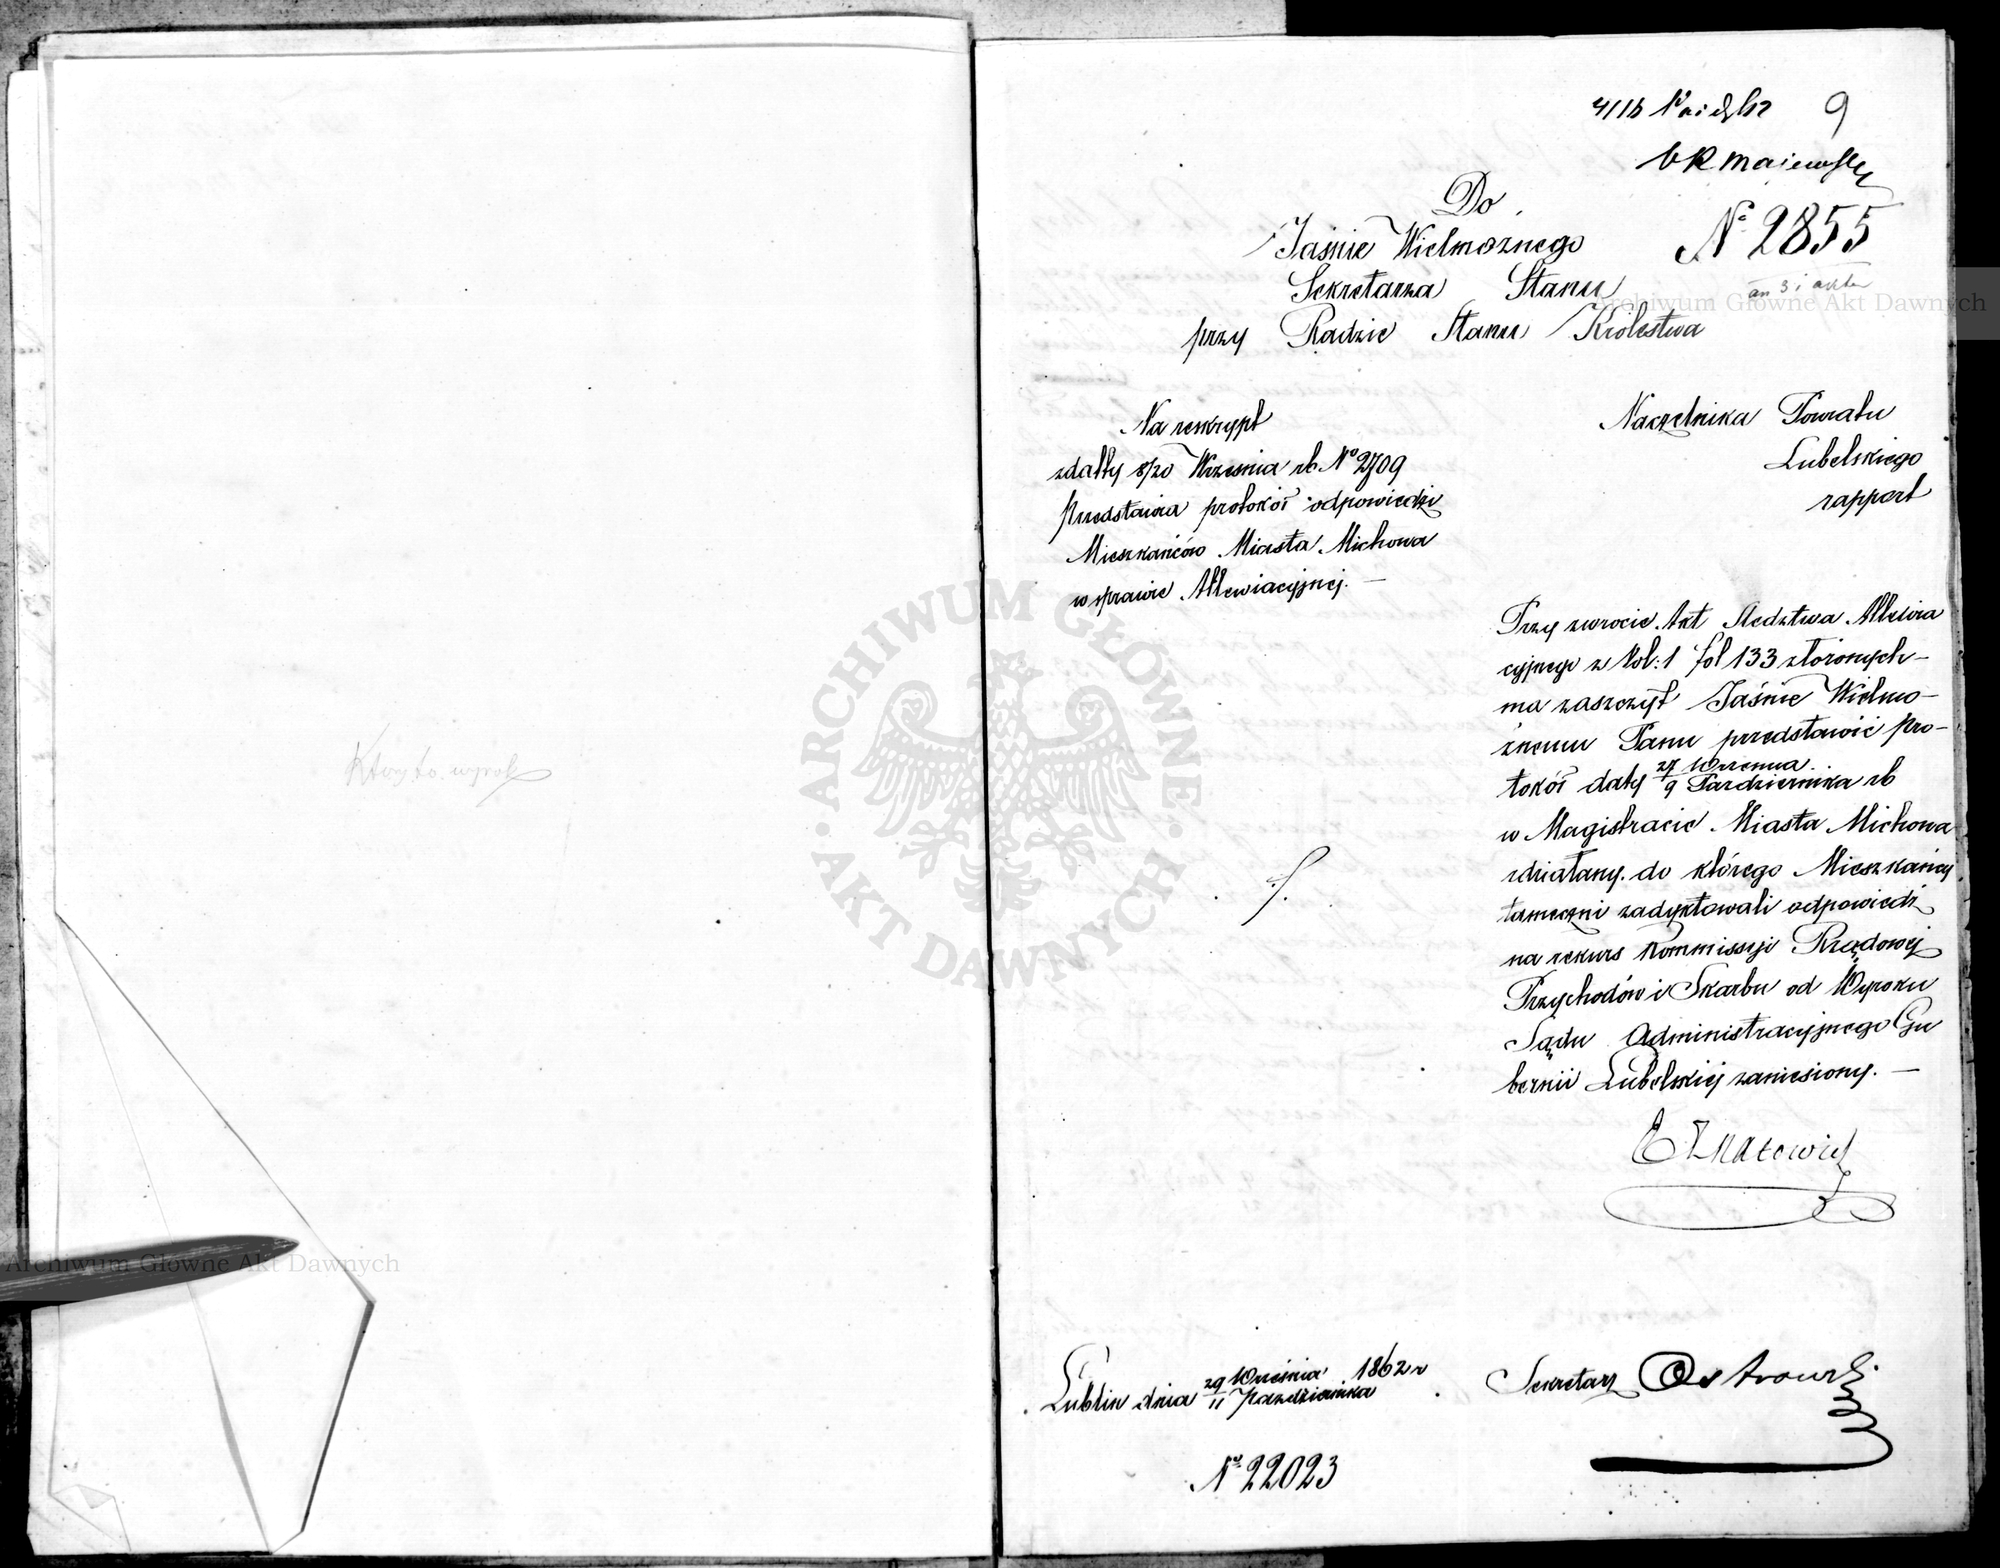 9
Majewski
Do
Jaśnie Wielmożnego
№ 2855
Sekretarza Stanu
przy Radzie Stanu Królestwa
Na reskrypt
zdatty 8/20 Września rb. № 2709
przedstawia protokół odpowiedzi
Mieszkańców Miasta Michowa
w sprawie Allewiacyjnej. —
Naczelnika Powiatu
Lubelskiego
rapport
Przy zwrocie Akt Śledztwa Allewia
cyjnego z Vol: 1 fol 133 złożonych —
ma zaszczyt Jaśnie Wielmo-
żnemu Panu przedstawić pro-
tokół daty 27 Września / 9 Pazdziernika rb
w Magistracie Miasta Michowa
zdziałany do którego Mieszkańcy
tameczni zadyktowali odpowiedź
na rekurs Kommissyi Rządowej
Przychodów i Skarbu od Wyroku
Sądu Administracyjnego Gu
bernii Lubelskiej zaniesiony. —
Lublin dnia 29 Września / 11 Pazdziernika 1862 r
Sekretarz Ostrowski
№ 22023
ARCHIWUM GŁÓWNE AKT DAWNYCH
Archiwum Główne Akt Dawnych
Archiwum Główne Akt Dawnych